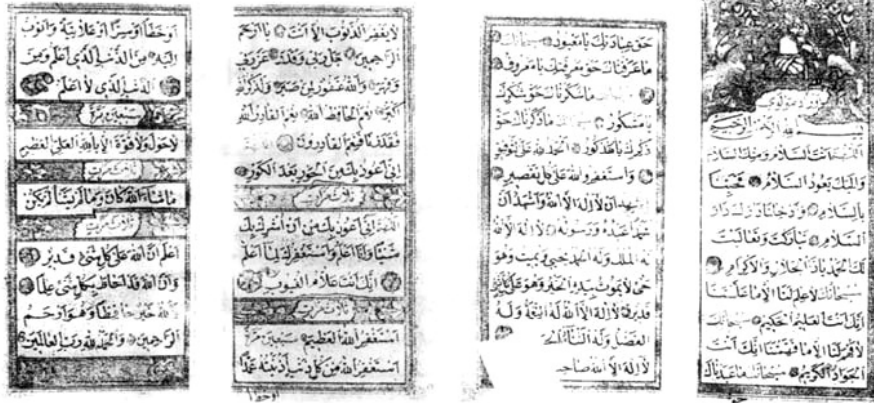 بسم الله الرحمن الرحيم
اللهم انت السلام ومنك السلام
واليك يعود السلام فحينا
بالسلام وادخلنا دارك دار
السلام تباركت وتعاليت
لك الحمد ياذا الجلال والاكرام
سبحانك لا علم لنا الا ما علمتنا
انك انت العليم الحكيم سبحانك
لا فهم لنا الا ما فهمتنا انك انت
الجواد الكريم سبحانك ما عبدناك
حق
حق عبادتك يا معبود سبحانك
ما عرفناك حق معرفتك يا معروف
سبحانك ما شكرناك حق شكرك
يا مشكور سبحانك ما ذكرناك حق
ذكرك يا مذكور الحمد لله على التوفيق
واستغفر الله على كل تقصير
اشهد ان لا اله الا الله واشهد ان
محمدا عبده ورسوله لا اله الا الله
له الملك وله الحمد يحيي ويميت وهو
حي لا يموت بيده الخير وهو على كل شئ
قدير لا اله الا الله له النعمة وله
الفضل وله الثناء الحسن
لا اله الا الله
لا يغفر الذنوب الا انت يا ارحم
الراحمين
والله غفور
نعم الحافظ الله نعم القادر الله
فقدرنا فنعم القادرون اللهم
انى اعوذ بك من الحور بعد الكور
ثلاث مرات
اللهم انى اعوذ بك من ان اشرك بك
شيئا وانا اعلم واستغفرك لما لا اعلم
انك انت علام الغيوب
ثلاث مرات
استغفر الله العظيم سبعين مرة
استغفر الله من كل ذنب اذنبته عمدا
او خطأ
او خطأ او سرا او علانية واتوب
اليه من الذنب الذى اعلم ومن
الذنب الذى لا اعلم
سبعين مرة
لا حول ولا قوة الا بالله العلى العظيم
ثلاث مرات
ما شاء الله كان وما لم يشأ لم يكن
ثلاث مرات
اعلم ان الله على كل شئ قدير
وان الله قد احاط بكل شئ علما
فالله خير حافظا وهو ارحم
الراحمين والحمد لله رب العالمين